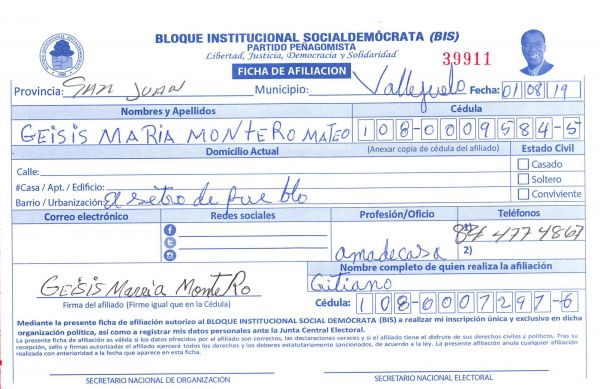 BLOQUE INSTITUCIONAL SOCIALDEMÓCRATA (BIS)
PARTIDO PEÑAGOMISTA
Libertad, Justicia, Democracia y Solidaridad
39911
FICHA DE AFILIACION
Provincia: SAN JUAN Municipio: Vallejuelo Fecha: 01/08/19
Nombres y Apellidos Cédula
GEISIS MARIA MONTERO MATEO 108-0009584-5
Domicilio Actual (Anexar copia de cédula del afiliado) Estado Civil
Calle: Casado
#Casa / Apt. / Edificio: Soltero
Barrio / Urbanización: El setro de pueblo Conviviente
Correo electrónico Redes sociales Profesión/Oficio Teléfonos
1) 4774867
amadecasa 2)
Nombre completo de quien realiza la afiliación
GeiSis Marria MonteRo Gitiano
Firma del afiliado (Firme igual que en la Cédula) Cédula: 108-0007297-6
Mediante la presente ficha de afiliación autorizo al BLOQUE INSTITUCIONAL SOCIAL DEMÓCRATA (BIS) a realizar mi inscripción única y exclusiva en dicha
organización política, así como a registrar mis datos personales ante la Junta Central Electoral.
La presente ficha de afiliación es válida si los datos ofrecidos por el afiliado son correctos, las declaraciones veraces y si el afiliado tiene el disfrute de sus derechos civiles y políticos. Tras su
recepción, sello y firmas autorizadas el afiliado ejercerá todos los derechos y los deberes estatutariamente sancionados, de acuerdo a la ley. La presente afiliación anula cualquier afiliación
realizada con anterioridad a la fecha que aparece en esta ficha.
SECRETARIO NACIONAL DE ORGANIZACIÓN SECRETARIO NACIONAL ELECTORAL